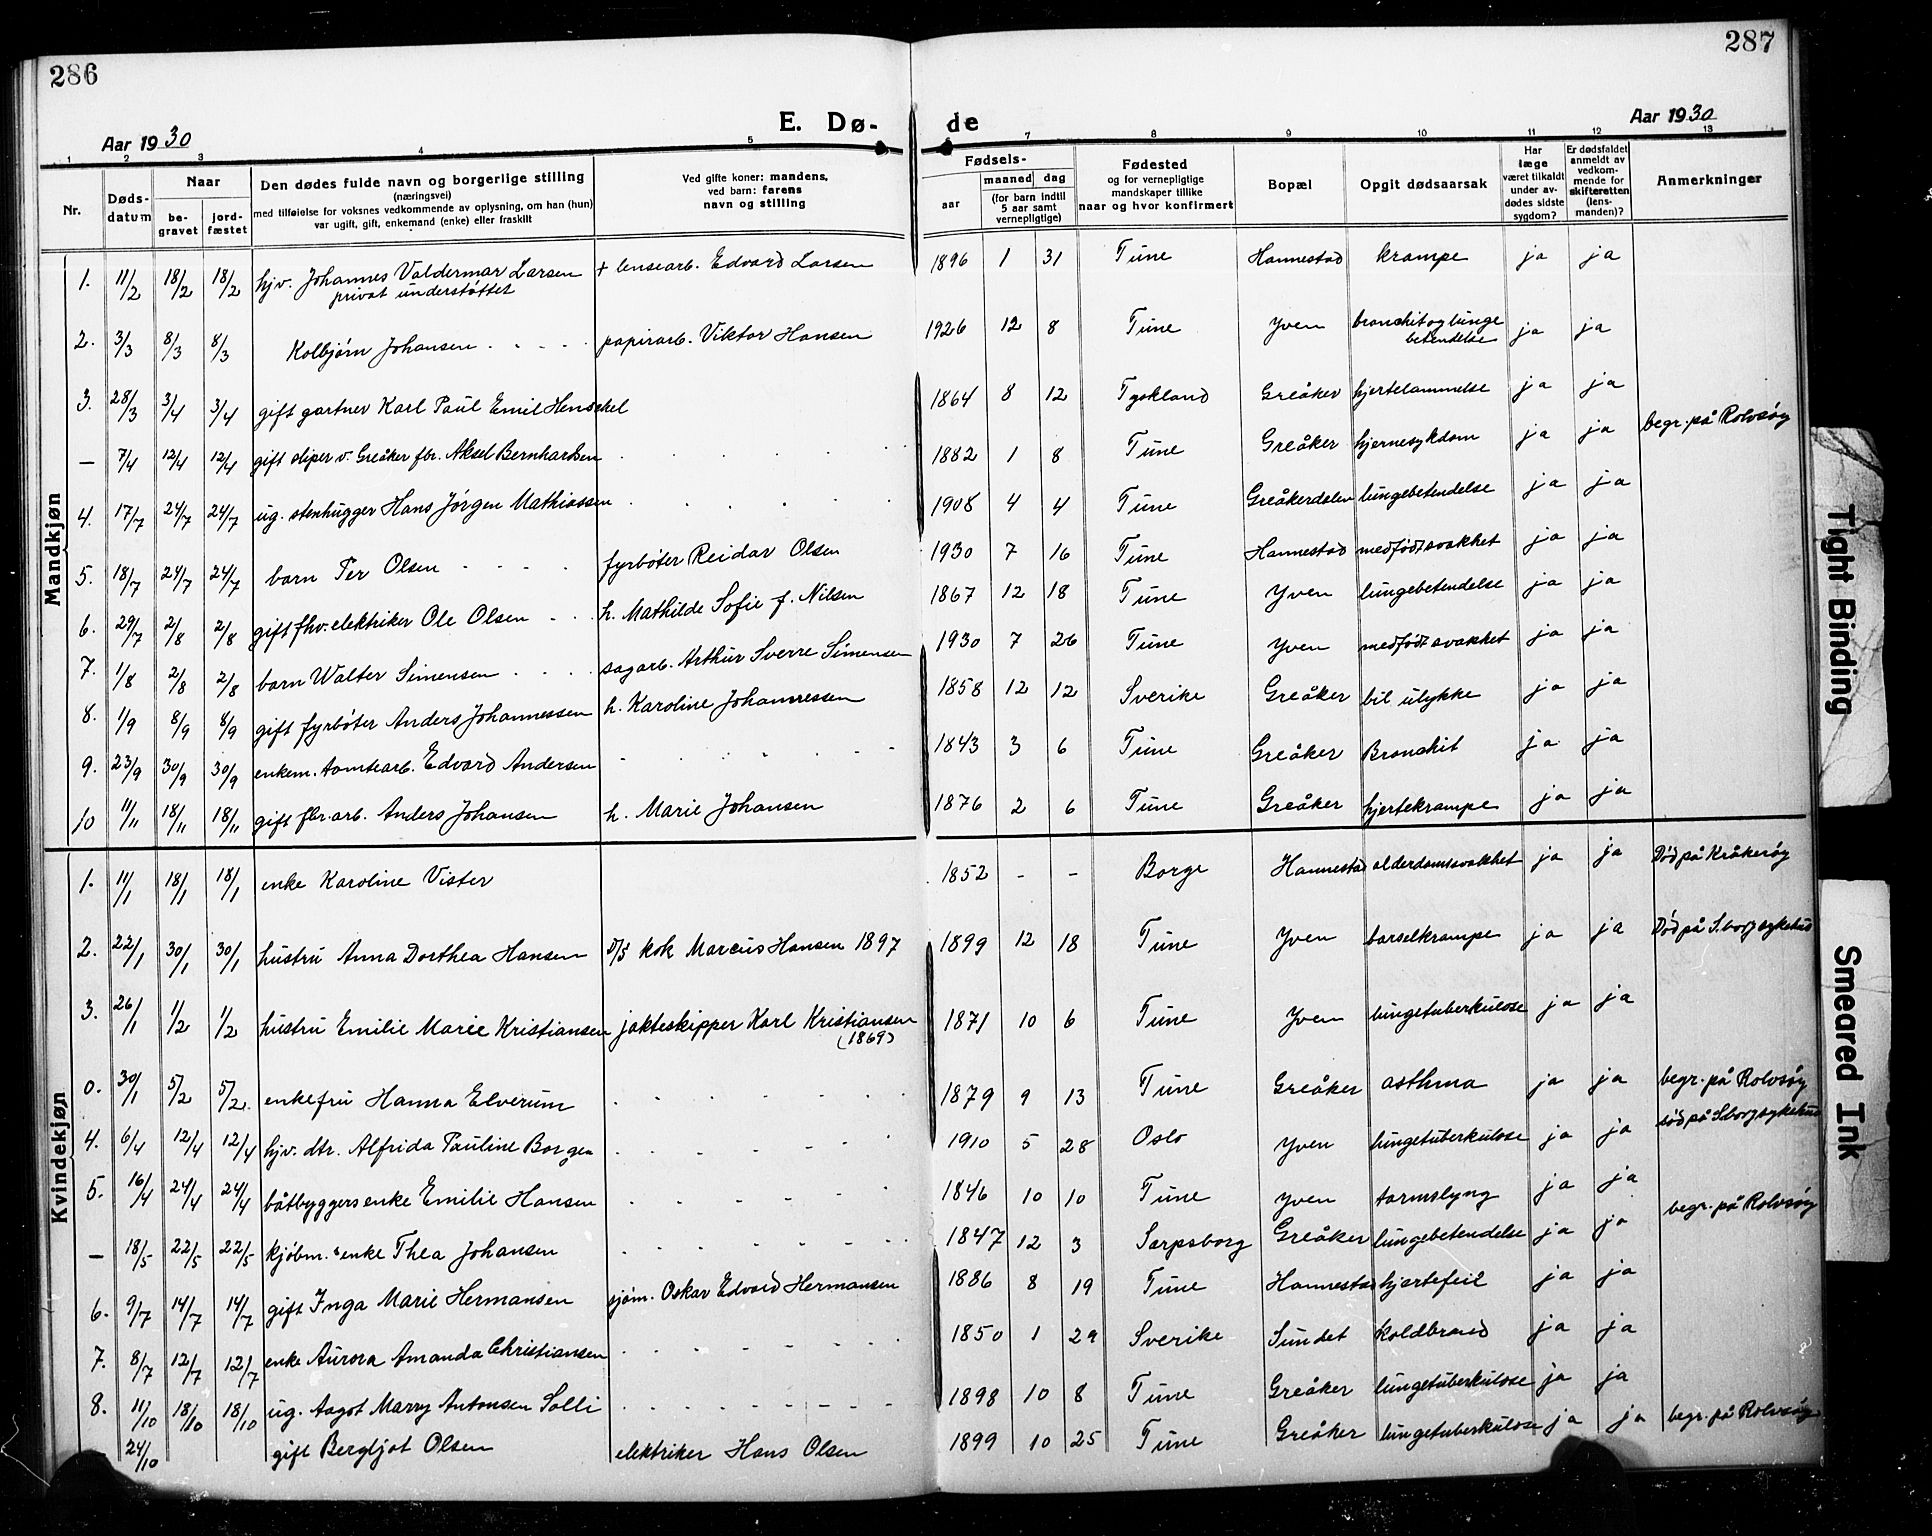 286
287
E. Dø-
de
Aar 1930
Aar 1930
1 2 3 4 5 6 7 8 9 10 11 12 13
Nr.
Døds-
datum
Naar
be-
gravet
jord-
fæstet
Den dødes fulde navn og borgerlige stilling
(næringsvei)
med tilføielse for voksnes vedkommende av oplysning, om han (hun)
var ugift, gift, enkemand (enke) eller fraskilt
Ved gifte koner: mandens,
ved barn: farens
navn og stilling
Fødsels-
aar
maaned
dag
(for barn indtil
5 aar samt
vernepligtige)
Fødested
og for vernepligtige
mandskaper tillike
naar og hvor konfirmert
Bopæl
Opgit dødsaarsak
Har
læge
været tilkaldt
under av-
dødes sidste
sygdom?
Er dødsfaldet
anmeldt av
vedkom-
mende for
skifteretten
(lens-
manden)?
Anmerkninger
Mandkjøn
1. 11/2 18/2 18/2 hjv. Johannes Valdermar Larsen + lensearb. Edvard Larsen 1896 1 31 Tune Hannestad krampe ja ja
privat understøttet
2. 3/3 8/3 8/3 Kolbjørn Johansen papirarb. Viktor Hansen 1926 12 8 Tune Yven bronchit og lunge ja ja
betendelse
3. 28/3 3/4 3/4 gift gartner Karl Paul Emil Henschel 1864 8 12 Tyskland Greåker hjertelammelse ja ja
— 7/4 12/4 12/4 gift sliper v. Greåker fbr. Aksel Bernhardsen 1882 1 8 Tune Greåker hjernesykdom ja ja begr. på Rolvsøy
4. 17/7 24/7 24/7 ug. stenhugger Hans Jørgen Mathiassen 1908 4 4 Tune Greåkerdalen lungebetendelse ja ja
5. 18/7 24/7 24/7 barn Per Olsen fyrbøter Reidar Olsen 1930 7 16 Tune Hannestad medfødt svakhet ja ja
6. 29/7 2/8 2/8 gift fhv. elektriker Ole Olsen h. Mathilde Sofie f. Nilsen 1867 12 18 Tune Yven lungebetendelse ja ja
7. 1/8 2/8 2/8 barn Walter Simensen sagarb. Arthur Sverre Simensen 1930 7 26 Tune Yven medfødt svakhet ja ja
8. 1/9 8/9 8/9 gift fyrbøter Anders Johannessen h. Karoline Johannessen 1858 12 12 Sverike Greåker bil ulykke ja ja
9. 23/9 30/9 30/9 enkem. tomtearb. Edvard Andersen 1843 3 6 Tune Greåker Bronchit ja ja
10 11/11 18/11 18/11 gift fbr. arb. Anders Johansen h. Marie Johansen 1876 2 6 Tune Greåker hjertekrampe ja ja
Kvindekjøn
1. 11/1 18/1 18/1 enke Karoline Vister 1852 - - Borge Hannestad alderdomsvakhet ja ja Død på Kråkerøy
2. 22/1 30/1 30/1 hustru Anna Dorthea Hansen D/S kok Marcus Hansen 1897 1899 12 18 Tune Yven barselkrampe ja ja Død på S.borg sykehus
3. 26/1 1/2 1/2 hustru Emilie Marie Kristiansen jakteskipper Karl Kristiansen 1871 10 6 Tune Yven lungetuberkulose ja ja
(1869)
0. 30/1 5/2 5/2 enkefru Hanna Elverum 1879 9 13 Tune Greåker asthma ja ja begr. på Rolvsøy
4. 6/4 12/4 12/4 hjv. dtr. Alfrida Pauline Borgen 1910 5 28 Oslo Yven lungetuberkulose ja ja død på S.borg sykehus
5. 16/4 24/4 24/4 båtbyggersenke Emilie Hansen 1846 10 10 Tune Yven tarmslyng ja ja
— 18/5 22/5 22/5 kjøbm.'s enke Thea Johansen 1847 12 3 Sarpsborg Greåker lungebetendelse ja ja begr. på Rolvsøy
6. 9/7 14/7 14/7 gift Inga Marie Hermansen sjøm. Oskar Edvard Hermansen 1886 8 19 Tune Hannestad hjertefeil ja ja
7. 8/7 12/7 12/7 enke Aurora Amanda Christiansen 1850 1 29 Sverike Sundet koldbrand ja ja
8. 11/10 18/10 18/10 ug. Aagot Marry Antonsen Solli 1898 10 8 Tune Greåker lungetuberkulose ja ja
24/10 gift Bergljot Olsen elektriker Hans Olsen 1899 10 25 Tune Greåker lungetuberkulose ja ja begr. på Rolvsøy
Tight Binding
Smeared Ink